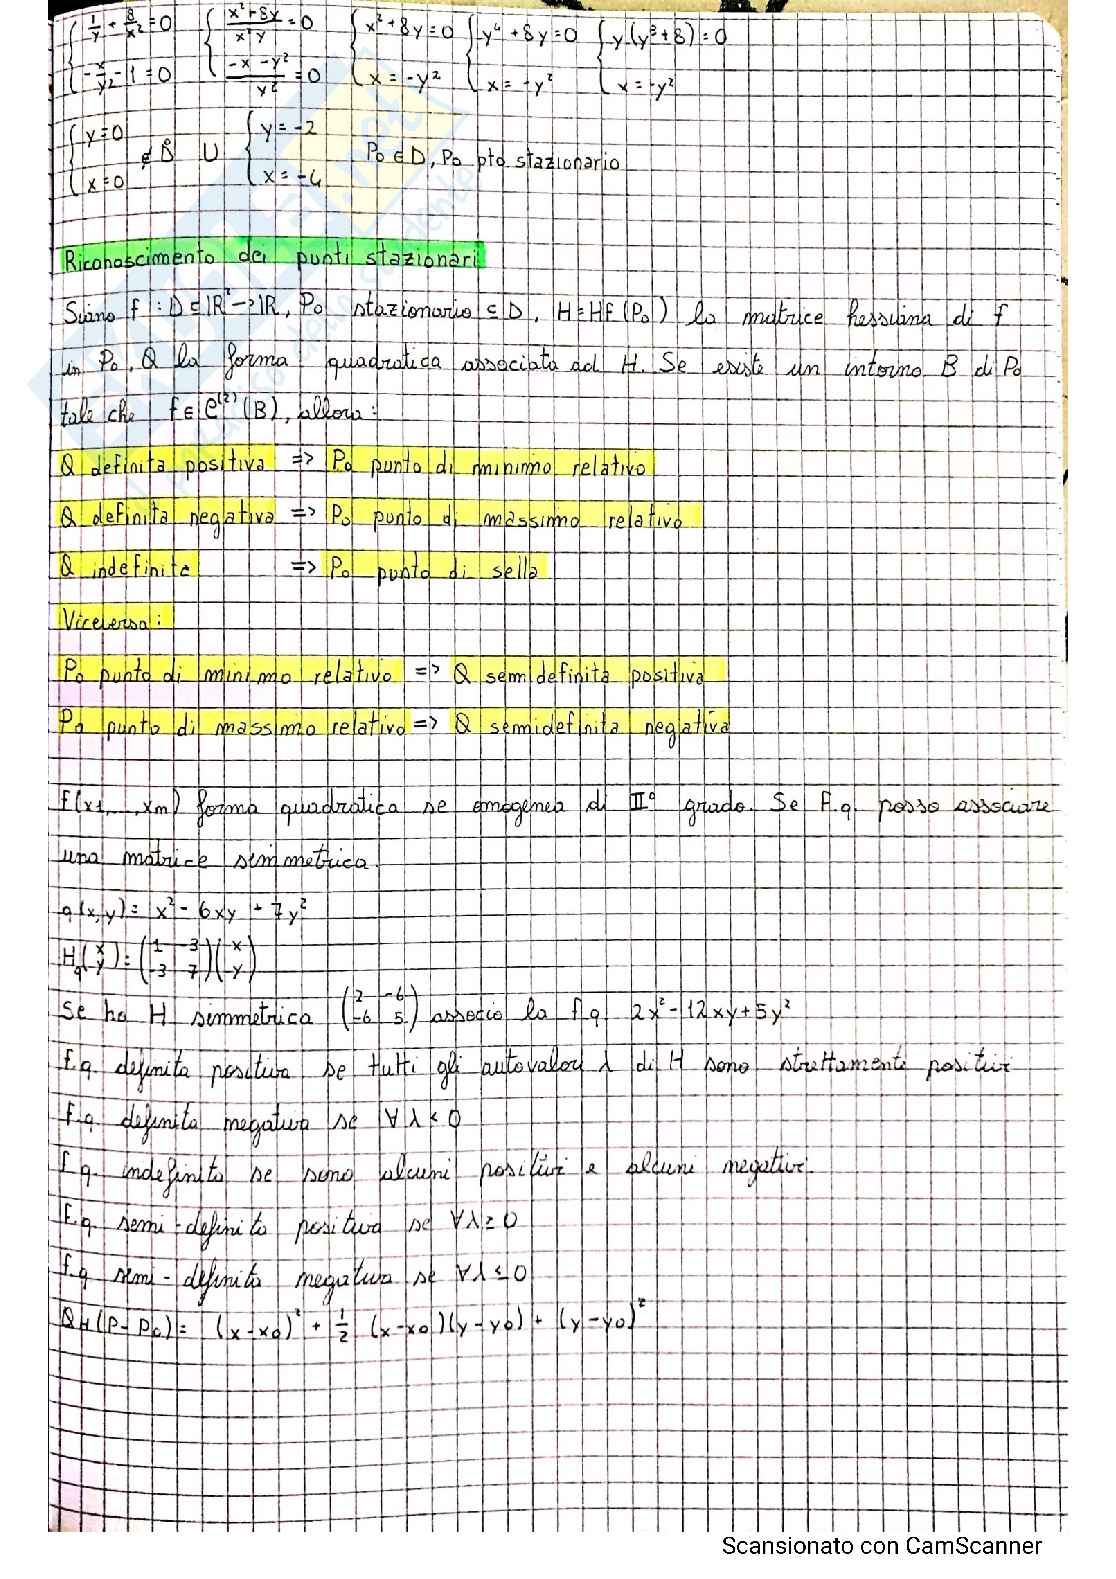 { 1/y + 8/x² = 0   { (x²+8y)/(x²y) = 0   { x²+8y=0   { y⁴+8y=0   { y(y³+8)=0
{ -x/y² - 1 = 0   { (-x-y²)/y² = 0   { x=-y²   { x=-y²   { x=-y²
{ y=0   ∉ D   U   { y=-2   P₀ ∈ D, P₀ pto stazionario
{ x=0   { x=-4
Riconoscimento dei punti stazionari
Siano f : D ⊆ ℝ² → ℝ, P₀ stazionario ⊆ D, H = Hf(P₀) la matrice hessiana di f
in P₀, Q la forma quadratica associata ad H. Se esiste un intorno B di P₀
tale che f ∈ C⁽²⁾(B), allora:
Q definita positiva => P₀ punto di minimo relativo
Q definita negativa => P₀ punto di massimo relativo
Q indefinita => P₀ punto di sella
Viceversa:
P₀ punto di minimo relativo => Q semidefinita positiva
P₀ punto di massimo relativo => Q semidefinita negativa
f(x1, ,xm) forma quadratica se omogenea di II° grado. Se f.q. posso associare
una matrice simmetrica.
q(x,y) = x² - 6xy + 7y²
Hq(x y) = (1 -3 -3 7)(x y)
Se ho H simmetrica (2 -6 -6 5) associo la f.q. 2x²-12xy+5y²
f.q. definita positiva se tutti gli autovalori λ di H sono strettamente positivi
f.q. definita negativa se ∀λ<0
f.q. indefinita se sono alcuni positivi e alcuni negativi.
f.q. semi-definita positiva se ∀λ≥0
f.q. semi-definita negativa se ∀λ≤0
QH(P-P₀) = (x-x₀)² + 1/2 (x-x₀)(y-y₀) + (y-y₀)²
Scansionato con CamScanner